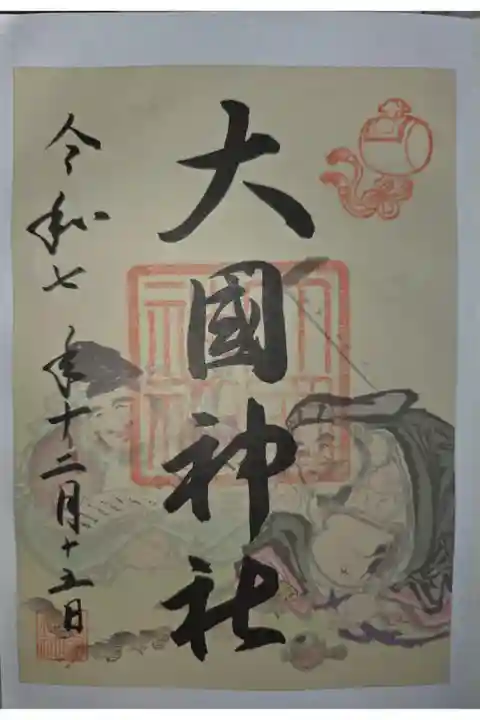 大國神社
令和七年十二月十五日